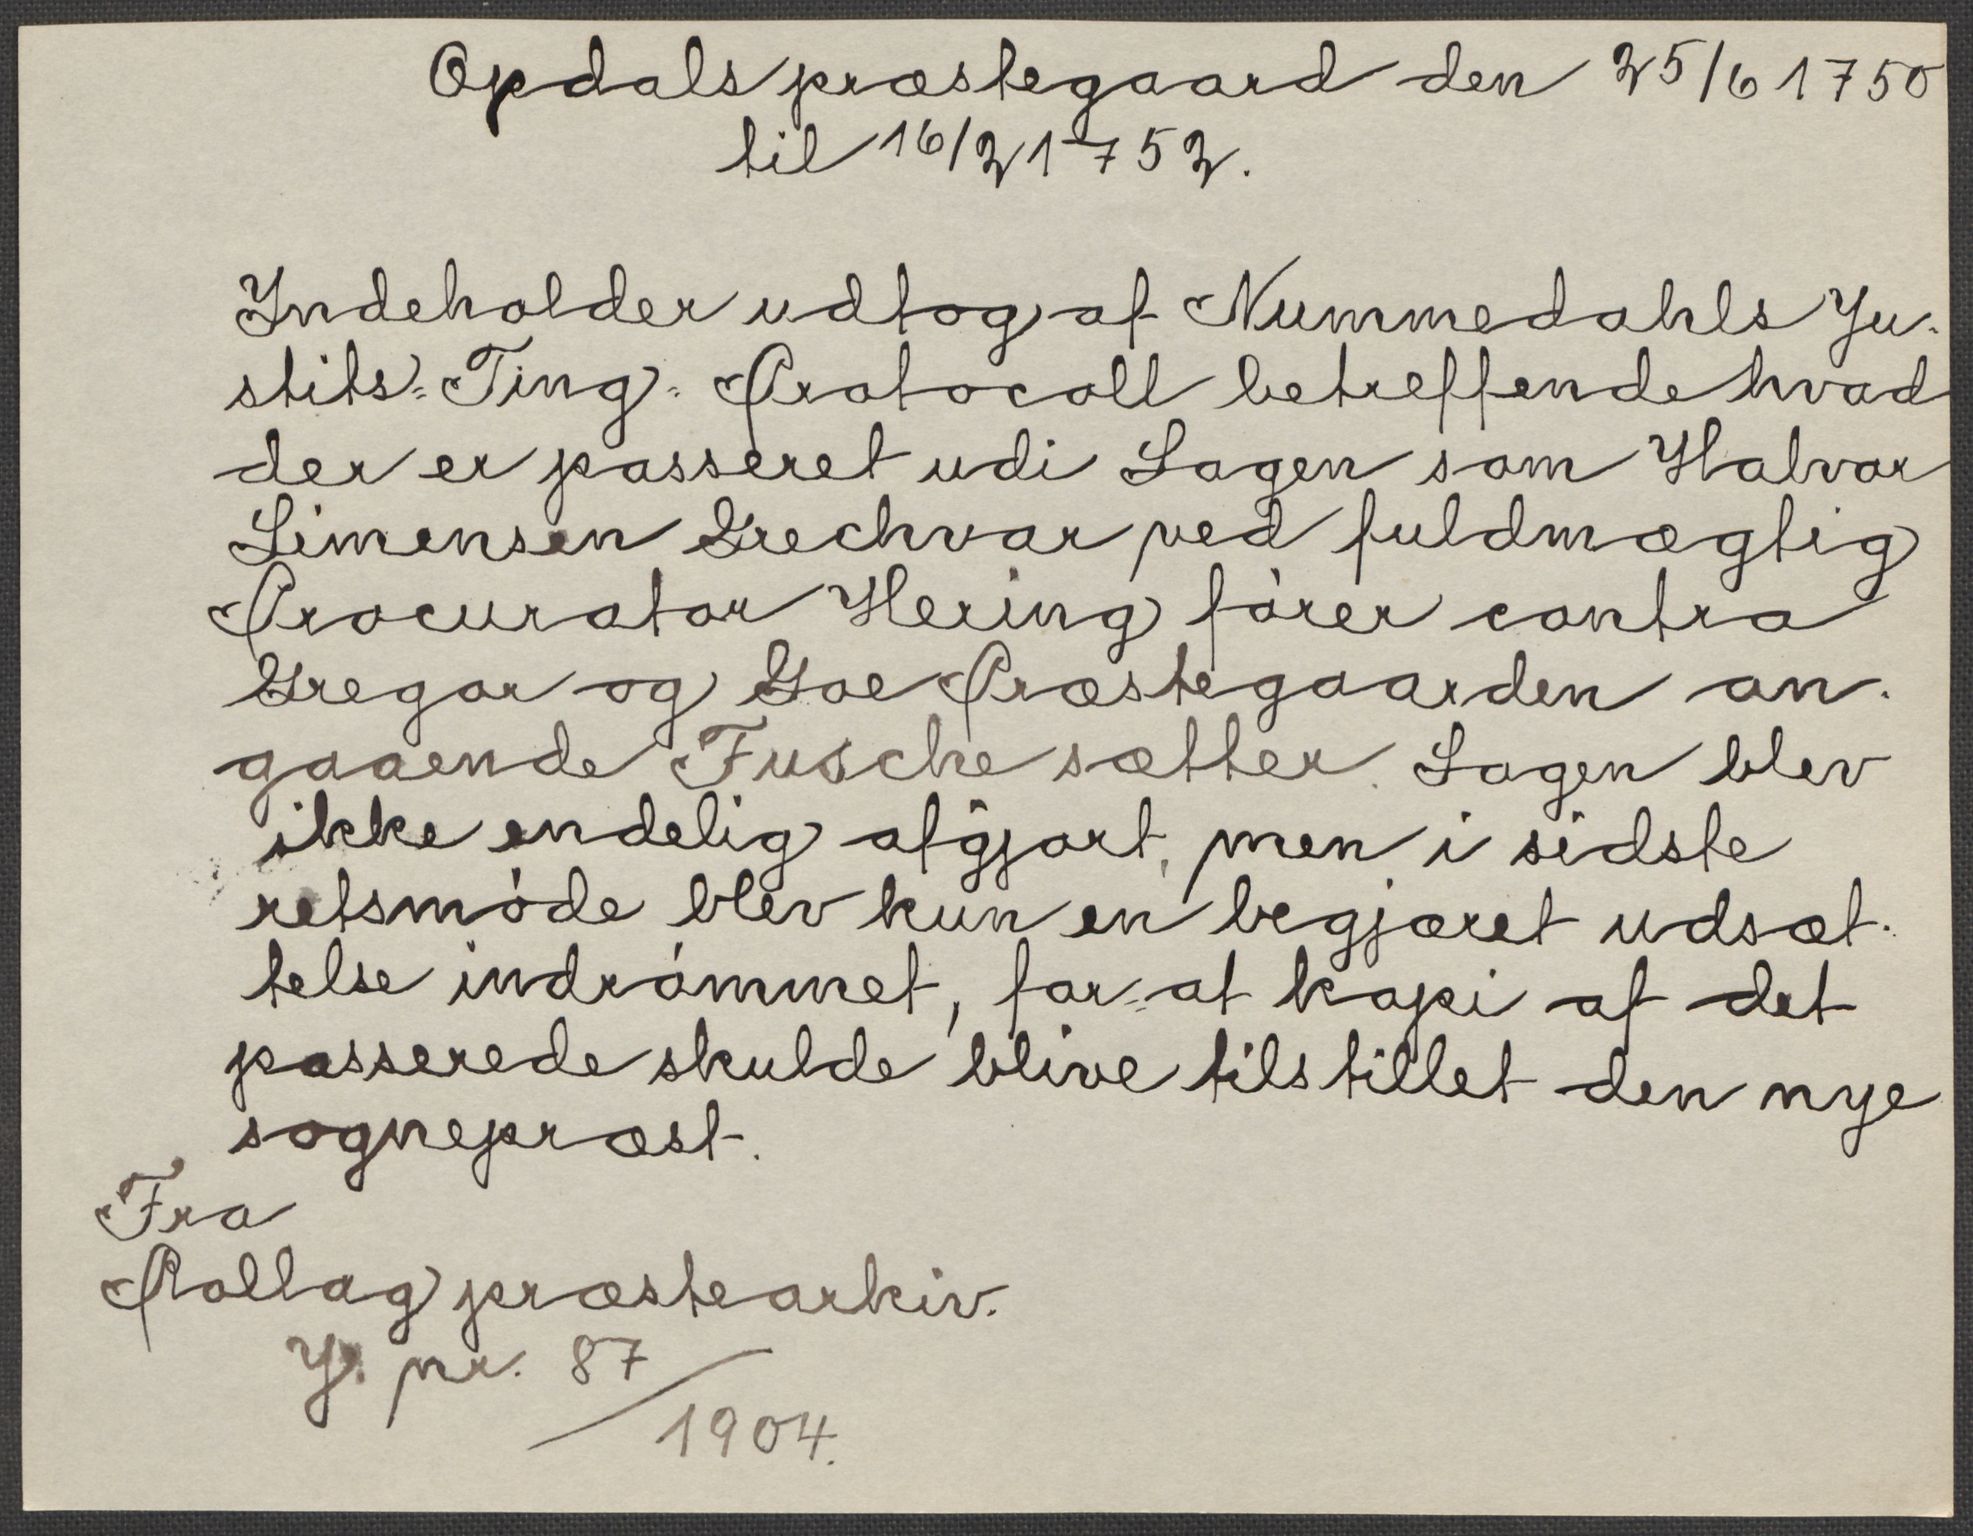 Opdals præstegaard den 25/6 1750
til 16/2 1752.
Indeholder udtog af Nummedahls Ju-
stits-Ting-Protocoll betreffende hvad
der er passeret udi Sagen som Halvor
Simensen Grechvar ved fuldmægtig
Procurator Hering fører contra
Gregar og Goe Præstegaarden an-
gaaende Fusche sætter. Sagen blev
ikke endelig afgjort, men i sidste
retsmøde blev kun en begjæret udsæt-
telse indrømmet, for-at kopi af det
passerede skulde blive tilstillet den nye
sogneprest.
Fra
Rollag præstearkiv.
J. nr. 87/1904.